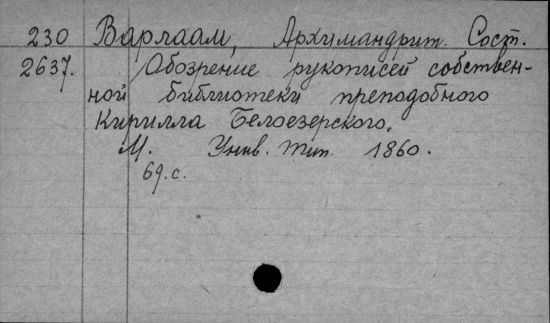 230 Варлаам, Архимандрит. Сост.
2637. Обозрение рукописей собствен-
ной библиотеки преподобного
Кирилла Белоезерского.
М. Унив. тип. 1860.
69.с.